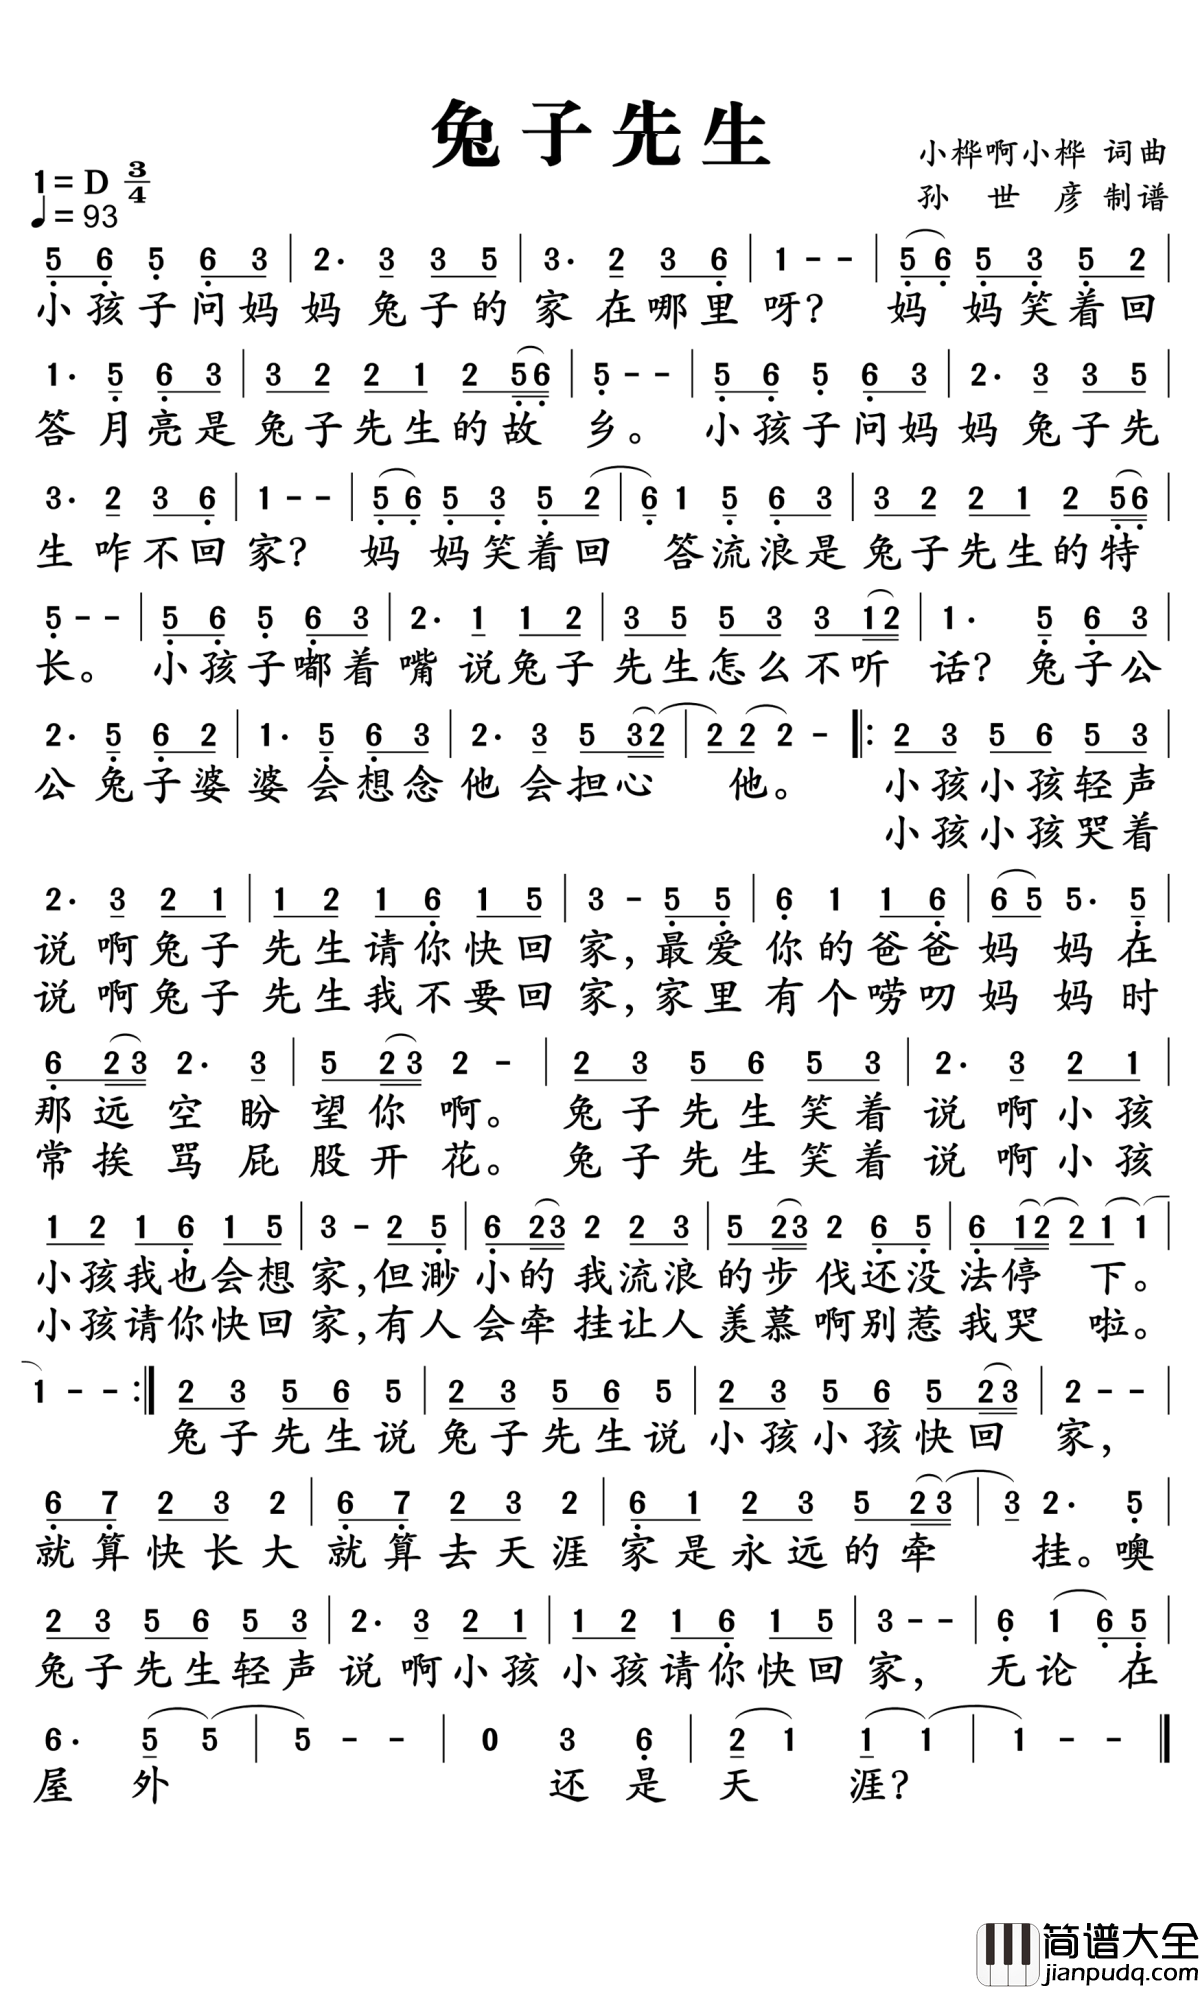 兔子先生
小桦啊小桦 词曲
1=D 3/4
孙世彦 制谱
♩=93
5 6 5 6 3 | 2· 3 3 5 | 3· 2 3 6 | 1 - - | 5 6 5 3 5 2 |
小孩子问妈妈兔子的家在哪里呀？妈妈笑着回
1· 5 6 3 | 3 2 2 1 2 5 6 | 5 - - | 5 6 5 6 3 | 2· 3 3 5 |
答月亮是兔子先生的故乡。小孩子问妈妈兔子先
3· 2 3 6 | 1 - - | 5 6 5 3 5 2 | 6 1 5 6 3 | 3 2 2 1 2 5 6 |
生咋不回家？妈妈笑着回答流浪是兔子先生的特
5 - - | 5 6 5 6 3 | 2· 1 1 2 | 3 5 5 3 3 1 2 | 1· 5 6 3 |
长。小孩子嘟着嘴说兔子先生怎么不听话？兔子公
2· 5 6 2 | 1· 5 6 3 | 2· 3 5 3 2 | 2 2 2 - ‖: 2 3 5 6 5 3 |
公兔子婆婆会想念他会担心他。小孩小孩轻声
小孩小孩哭着
2· 3 2 1 | 1 2 1 6 1 5 | 3 - 5 5 | 6 1 1 6 | 6 5 5· 5 |
说啊兔子先生请你快回家，最爱你的爸爸妈妈在
说啊兔子先生我不要回家，家里有个唠叨妈妈时
6 2 3 2· 3 | 5 2 3 2 - | 2 3 5 6 5 3 | 2· 3 2 1 |
那远空盼望你啊。兔子先生笑着说啊小孩
常挨骂屁股开花。兔子先生笑着说啊小孩
1 2 1 6 1 5 | 3 - 2 5 | 6 2 3 2 2 3 | 5 2 3 2 6 5 | 6 1 2 2 1 1 |
小孩我也会想家，但渺小的我流浪的步伐还没法停下。
小孩请你快回家，有人会牵挂让人羡慕啊别惹我哭啦。
1 - - :‖ 2 3 5 6 5 | 2 3 5 6 5 | 2 3 5 6 5 2 3 | 2 - - |
兔子先生说兔子先生说小孩小孩快回家，
6 7 2 3 2 | 6 7 2 3 2 | 6 1 2 3 5 2 3 | 3 2· 5 |
就算快长大就算去天涯家是永远的牵挂。噢
2 3 5 6 5 3 | 2· 3 2 1 | 1 2 1 6 1 5 | 3 - - | 6 1 6 5 |
兔子先生轻声说啊小孩小孩请你快回家，无论在
6· 5 5 | 5 - - | 0 3 6 | 2 1 1 1 | 1 - - ‖
屋外还是天涯？
简谱大全
jianpudq.com